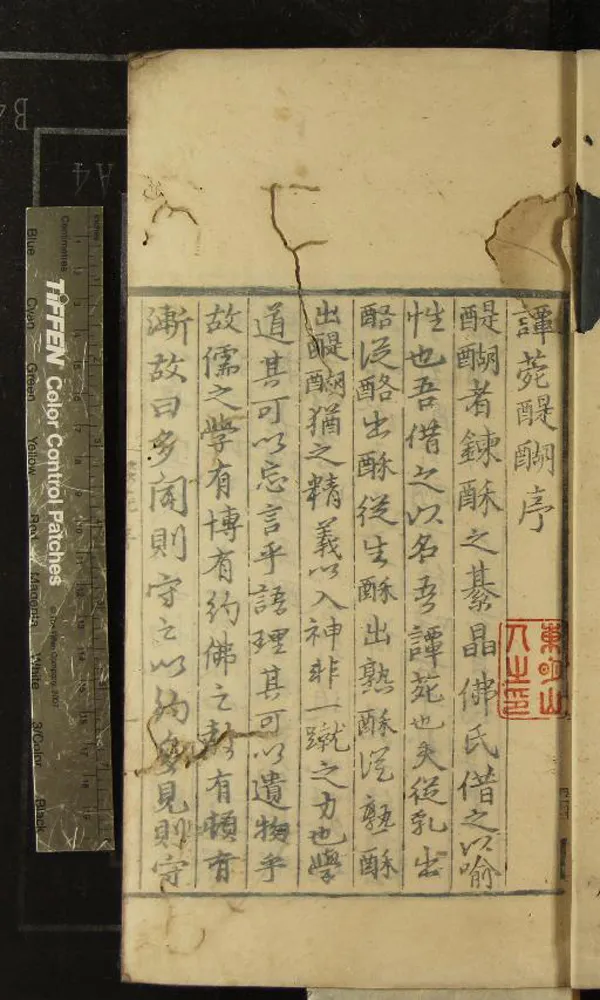 譚菀醍醐序
醍醐者鍊酥之綦晶佛氏借之以喻
性也吾借之以名吾譚菀也夫從乳出
酪從酪出酥從生酥出熟酥從熟酥
出醍醐猶之精義以入神非一蹴之力也學
道其可以忘言乎語理其可以遺物乎
故儒之學有博有約佛之教有頓有
漸故曰多聞則守之以約多見則守
TIFFEN Color Control Patches
Centimetres
Inches
Blue
Cyan
Green
Yellow
Red
Magenta
White
3/Color
Black
A4
B4